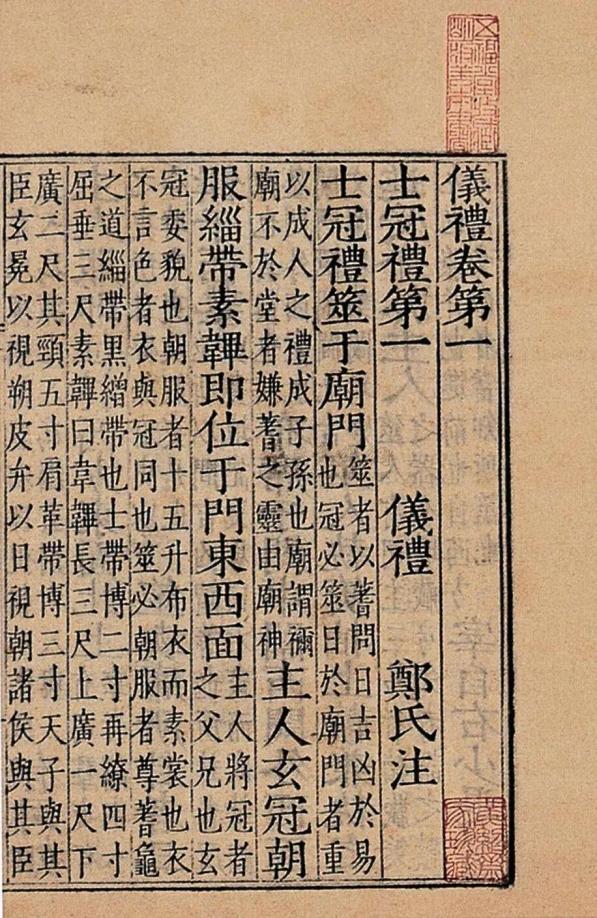 儀禮卷第一
士冠禮第一　儀禮　鄭氏注
士冠禮筮于廟門
筮者以蓍問日吉凶於易
也冠必筮日於廟門者重
以成人之禮成子孫也廟謂禰
廟不於堂者嫌蓍之靈由廟神
主人玄冠朝
服緇帶素韠即位于門東西面
主人將冠者
之父兄也玄
冠委貌也朝服者十五升布衣而素裳也衣
不言色者衣與冠同也筮必朝服者尊蓍龜
之道緇帶黑繒帶也士帶博二寸再繚四寸
屈垂三尺素韠曰韋韠長三尺上廣一尺下
廣二尺其頸五寸肩革帶博三寸天子與其
臣玄冕以視朔皮弁以日視朝諸侯與其臣